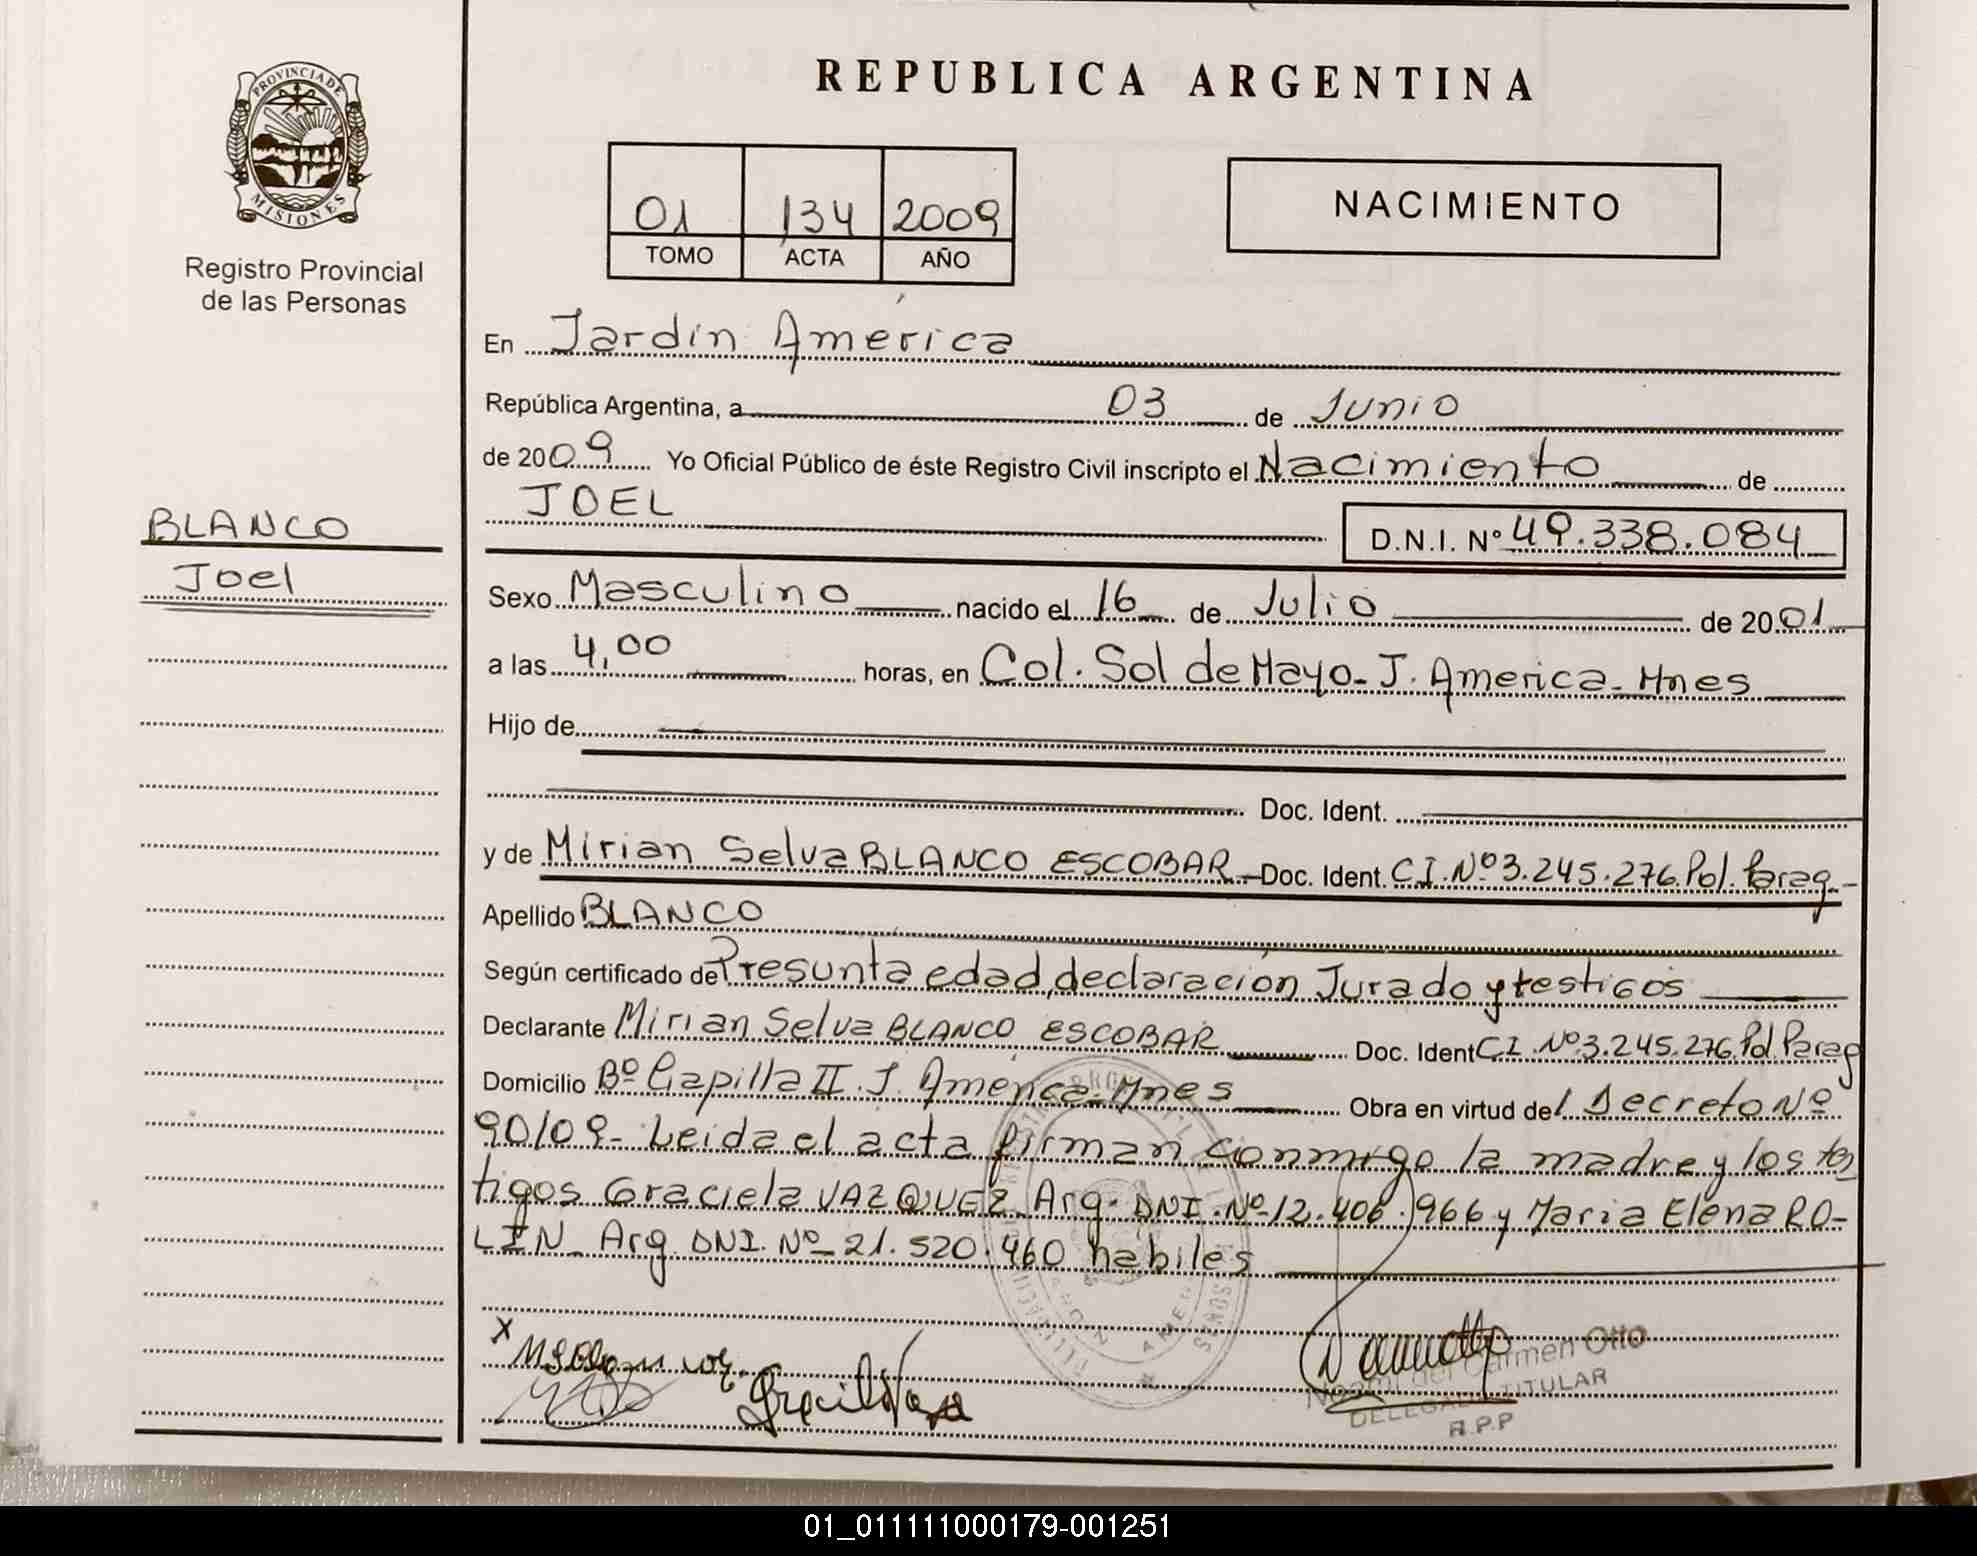 PROVINCIA DE
MISIONES
Registro Provincial
de las Personas
BLANCO
Joel
REPUBLICA ARGENTINA
01 134 2009
TOMO ACTA AÑO
NACIMIENTO
En Jardín América
República Argentina, a 03 de Junio
de 2009 Yo Oficial Público de éste Registro Civil inscripto el Nacimiento de
JOEL
D.N.I. N° 49.338.084
Sexo Masculino nacido el 16 de Julio de 2001
a las 4,00 horas, en Col. Sol de Mayo - J. America - Mnes
Hijo de
Doc. Ident.
y de Mirian Selva BLANCO ESCOBAR - Doc. Ident. C.I. Nº 3.245.276 Pol. Parag -
Apellido BLANCO
Según certificado de Presunta edad, declaración Jurado y testigos
Declarante Mirian Selva BLANCO ESCOBAR Doc. Ident C.I. Nº 3.245.276 Pol. Parag
Domicilio Bº Capilla II. J. América - Mnes Obra en virtud del Decreto Nº
90/09 - Leida el acta firman conmigo la madre y los tes
tigos Graciela VAZQUEZ Arg. DNI. Nº 12.406.966 y Maria Elena RO-
LIN - Arg DNI. Nº 21.520.460 habiles
X
Noemi del Carmen Otto
DELEGADA TITULAR
R.P.P
01_011111000179-001251